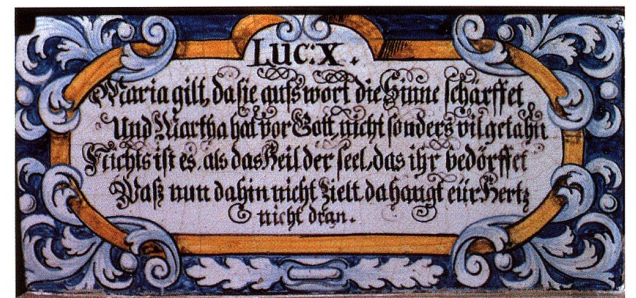 Luc: X.
Maria gilt, da sie aufs wort die Sinne schärffet
Und Martha hat vor Gott nicht sonders vil getahn
Nichts ist es, als das Heil der seel, das ihr bedörffet
Waß nun dahin nicht zielt, da hangt eür Hertz
nicht dran.